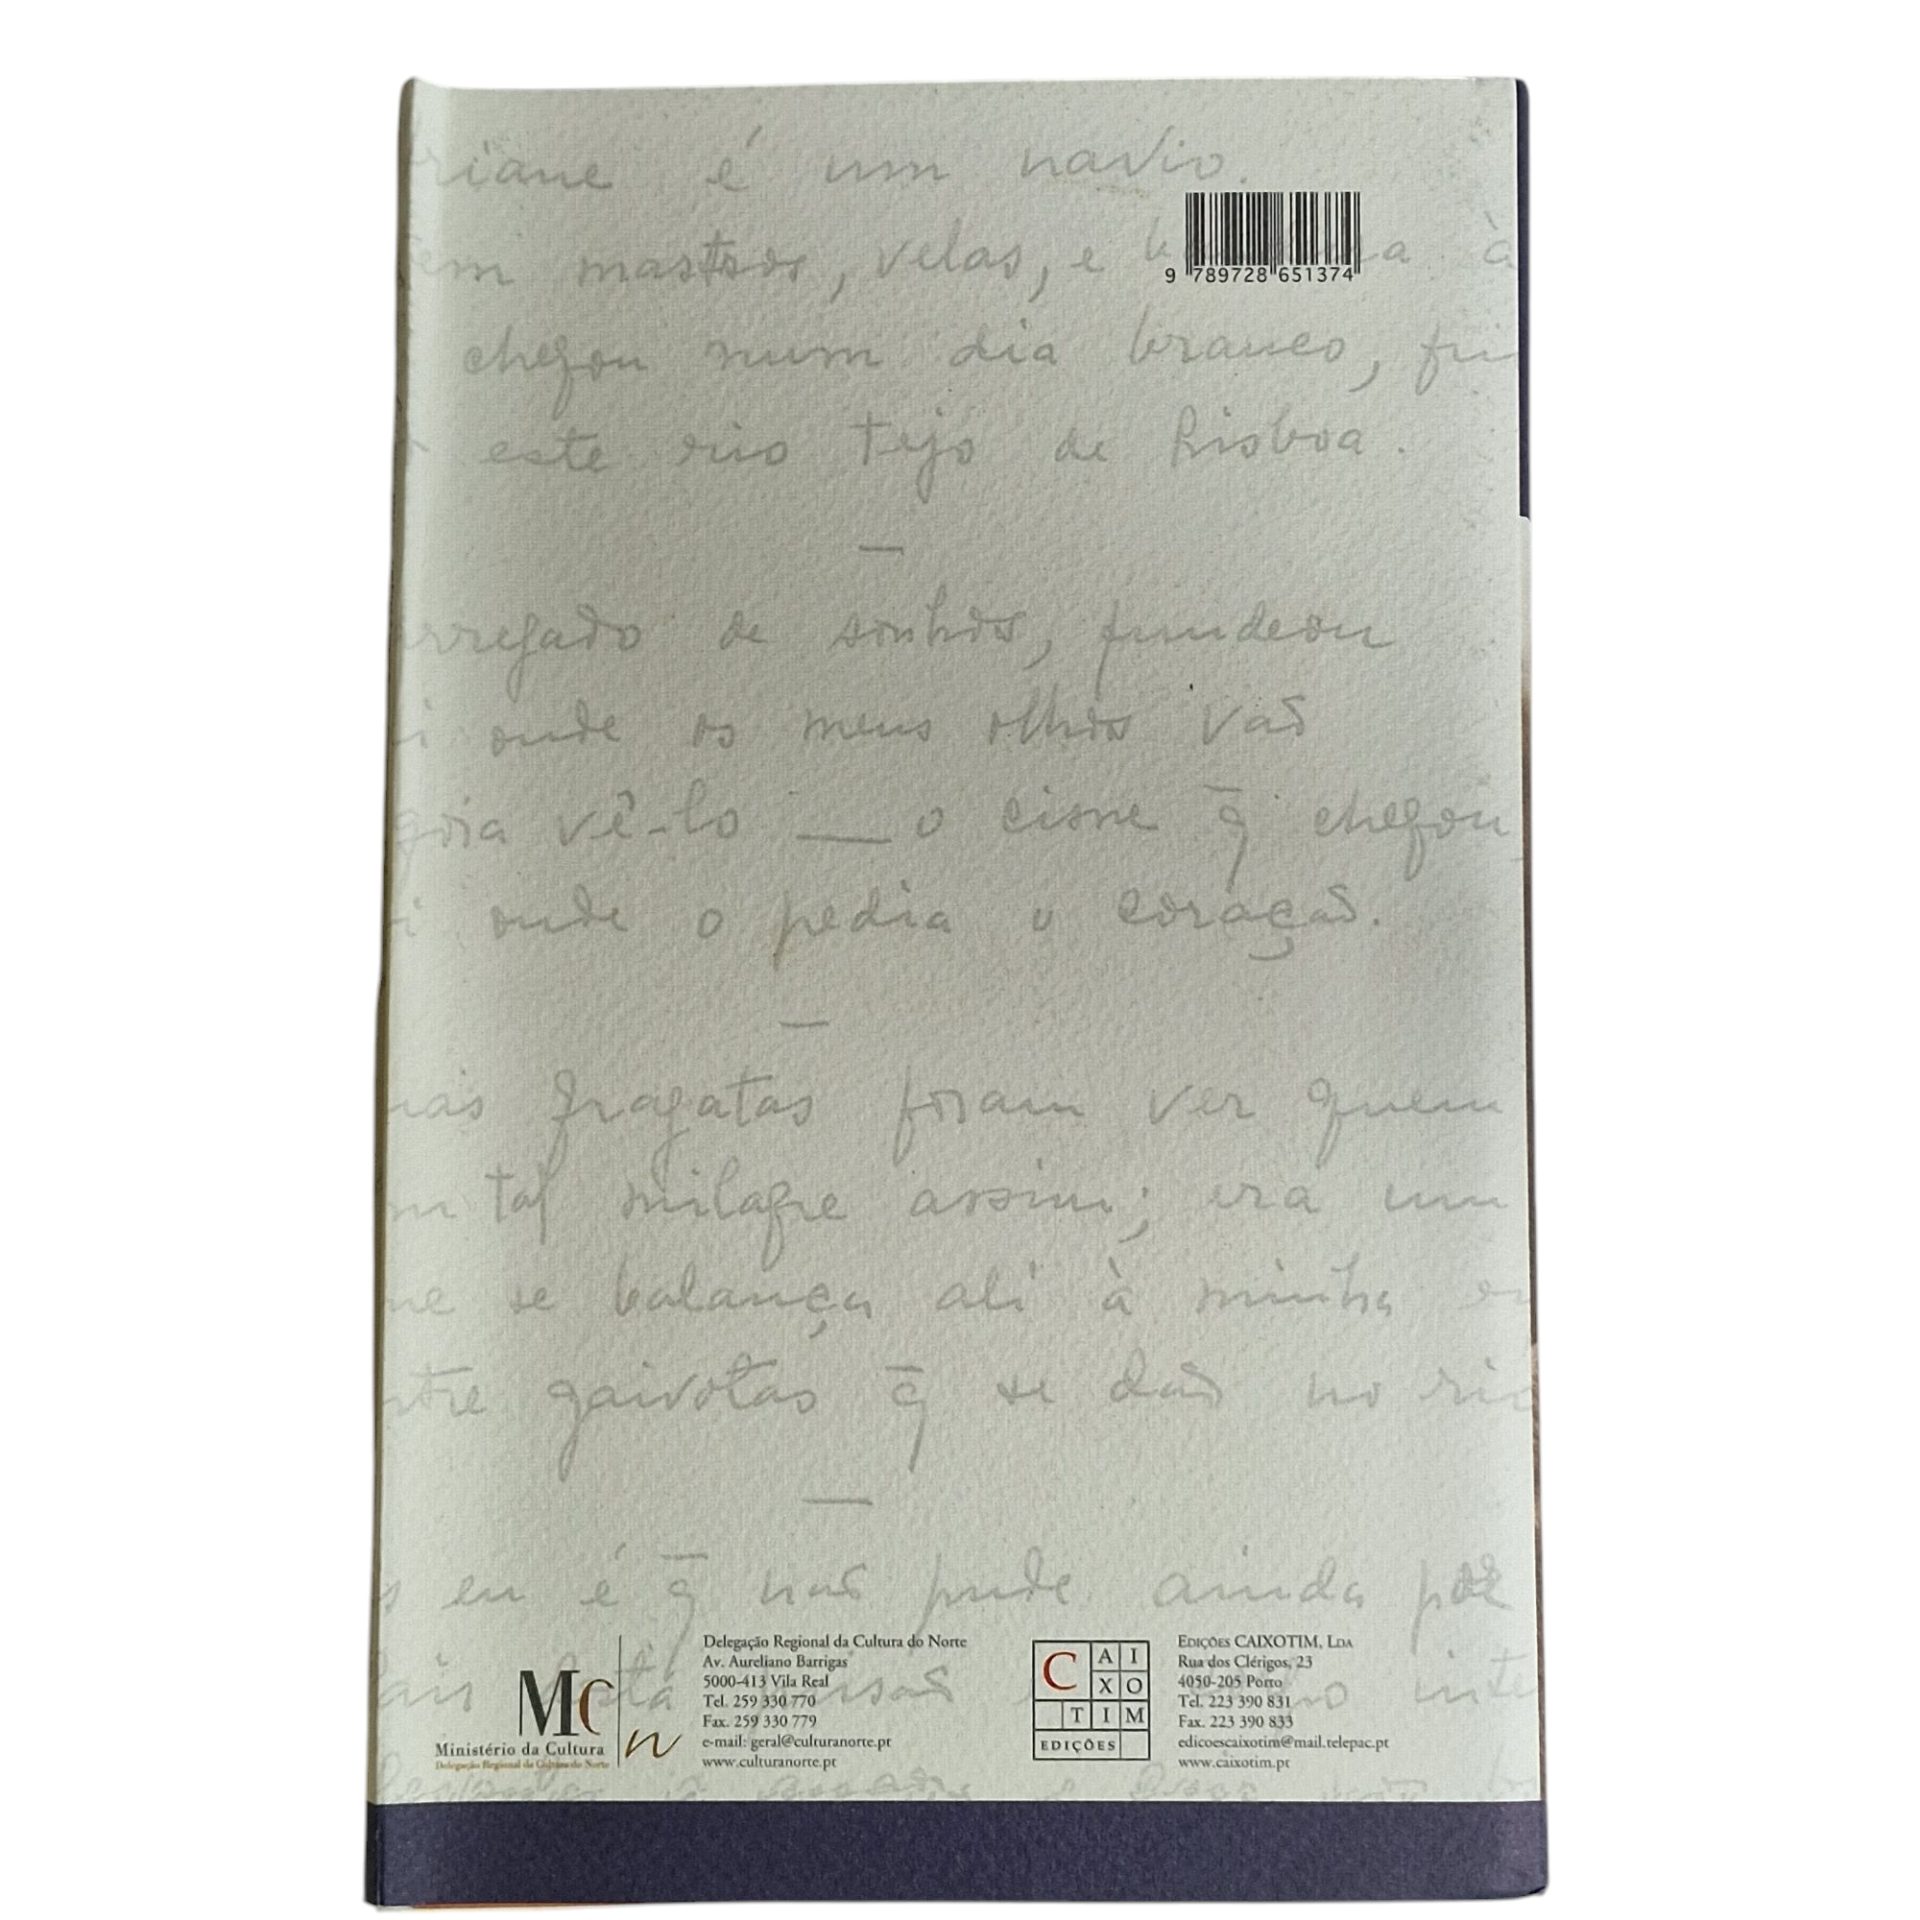 riane é um navio.
tem mastros, velas, e à
9 789728 651374
chegou num dia branco, fri
este rio Tejo de Lisboa.
rregado de sonhos, fundeou
i onde os meus olhos vão
gora vê-lo — o cisne q̄ chegou,
i onde o pedia o coração.
fragatas foram ver quem
m tal milagre assim; era um
ne se balança ali à minha
ntre gaivotas q̄ se dão no rio
s eu é q̄ não pude ainda por
Mc n
Ministério da Cultura
Delegação Regional da Cultura do Norte
Delegação Regional da Cultura do Norte
Av. Aureliano Barrigas
5000-413 Vila Real
Tel. 259 330 770
Fax. 259 330 779
e-mail: geral@culturanorte.pt
www.culturanorte.pt
CAIXOTIM
EDIÇÕES
EDIÇÕES CAIXOTIM, LDA
Rua dos Clérigos, 23
4050-205 Porto
Tel. 223 390 831
Fax. 223 390 833
edicoescaixotim@mail.telepac.pt
www.caixotim.pt